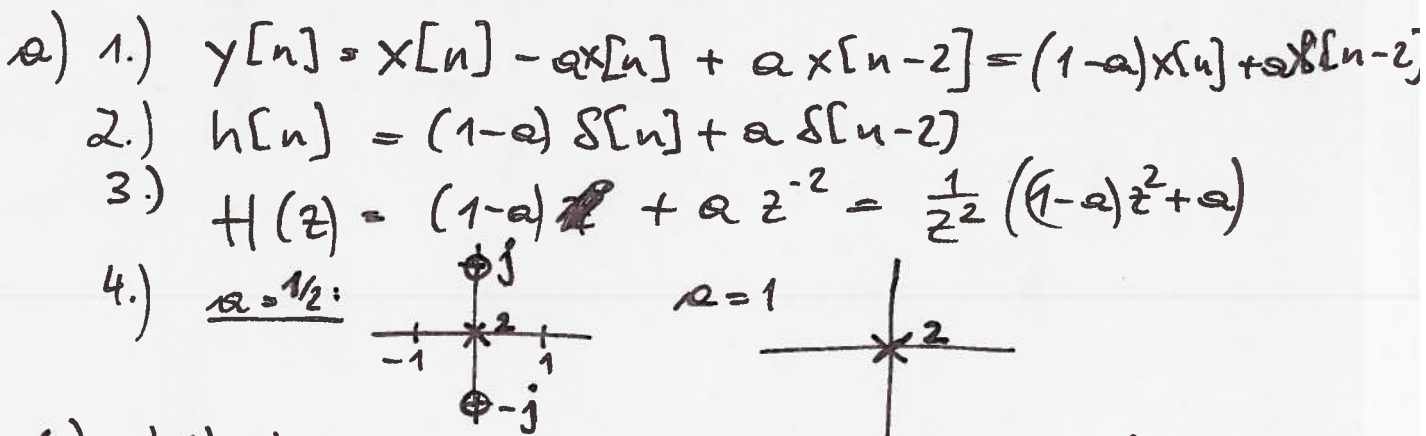 a) 1.) y[n] = x[n] - ax[n] + a x[n-2] = (1-a)x[n] + ax[n-2]
2.) h[n] = (1-a) δ[n] + a δ[n-2]
3.) H(z) = (1-a) + a z⁻² = 1/z² ((1-a)z²+a)
4.) a = 1/2: j a = 1
2 2
-1 1
-j